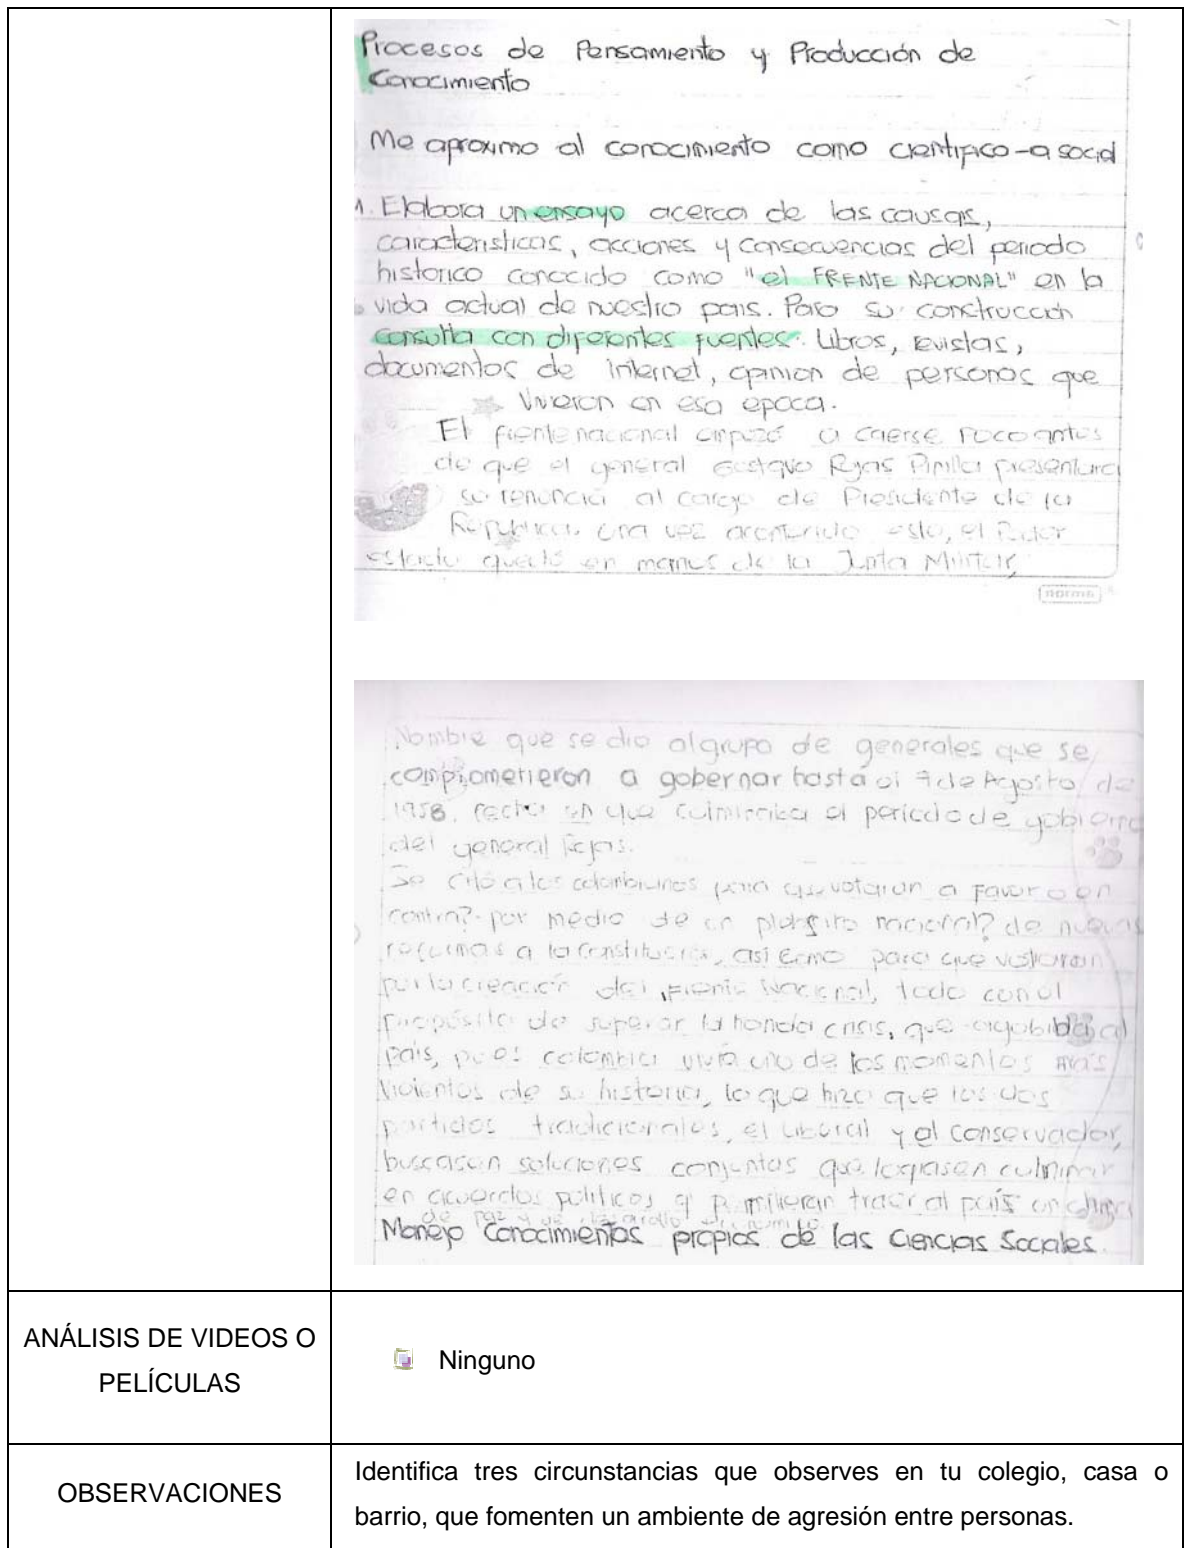 Procesos de Pensamiento y Producción de
Conocimiento
Me aproximo al conocimiento como científico-a social
1. Elabora un ensayo acerca de las causas,
caracteristicas, acciones y consecuencias del periodo
historico conocido como "el FRENTE NACIONAL" en la
vida actual de nuestro pais. Para su construccion
consulta con diferentes fuentes: Libros, revistas,
documentos de internet, opinion de personas que
vivieron en esa epoca.
El frente nacional empezó a caerse poco antes
de que el general Gustavo Rojas Pinilla presentara
su renuncia al cargo de Presidente de la
República, una vez acontecido esto, el Poder
estado quedó en manos de la Junta Militar,
norma
Nombre que se dio al grupo de generales que se
comprometieron a gobernar hasta el 7 de Agosto de
1958, fecha en que culminaba el periodo de gobierno
del general Rojas.
Se citó a los colombianos para que votaran a favor o en
contra? por medio de un nacional? de nuevas
reformas a la constitución, así como para que votaran
por la creación del Frente Nacional, todo con el
propósito de superar la honda crisis, que agobiaba al
país, pues colombia vivía uno de los momentos mas
violentos de su historia, lo que hizo que los dos
partidos tradicionales, el liberal y el conservador,
buscasen soluciones conjuntas que culminar
en acuerdos politicos q permitieran traer al país un clima
de paz y de desarrollo
Manejo Conocimientos propios de las Ciencias Sociales.
ANÁLISIS DE VIDEOS O
PELÍCULAS
Ninguno
OBSERVACIONES
Identifica tres circunstancias que observes en tu colegio, casa o
barrio, que fomenten un ambiente de agresión entre personas.